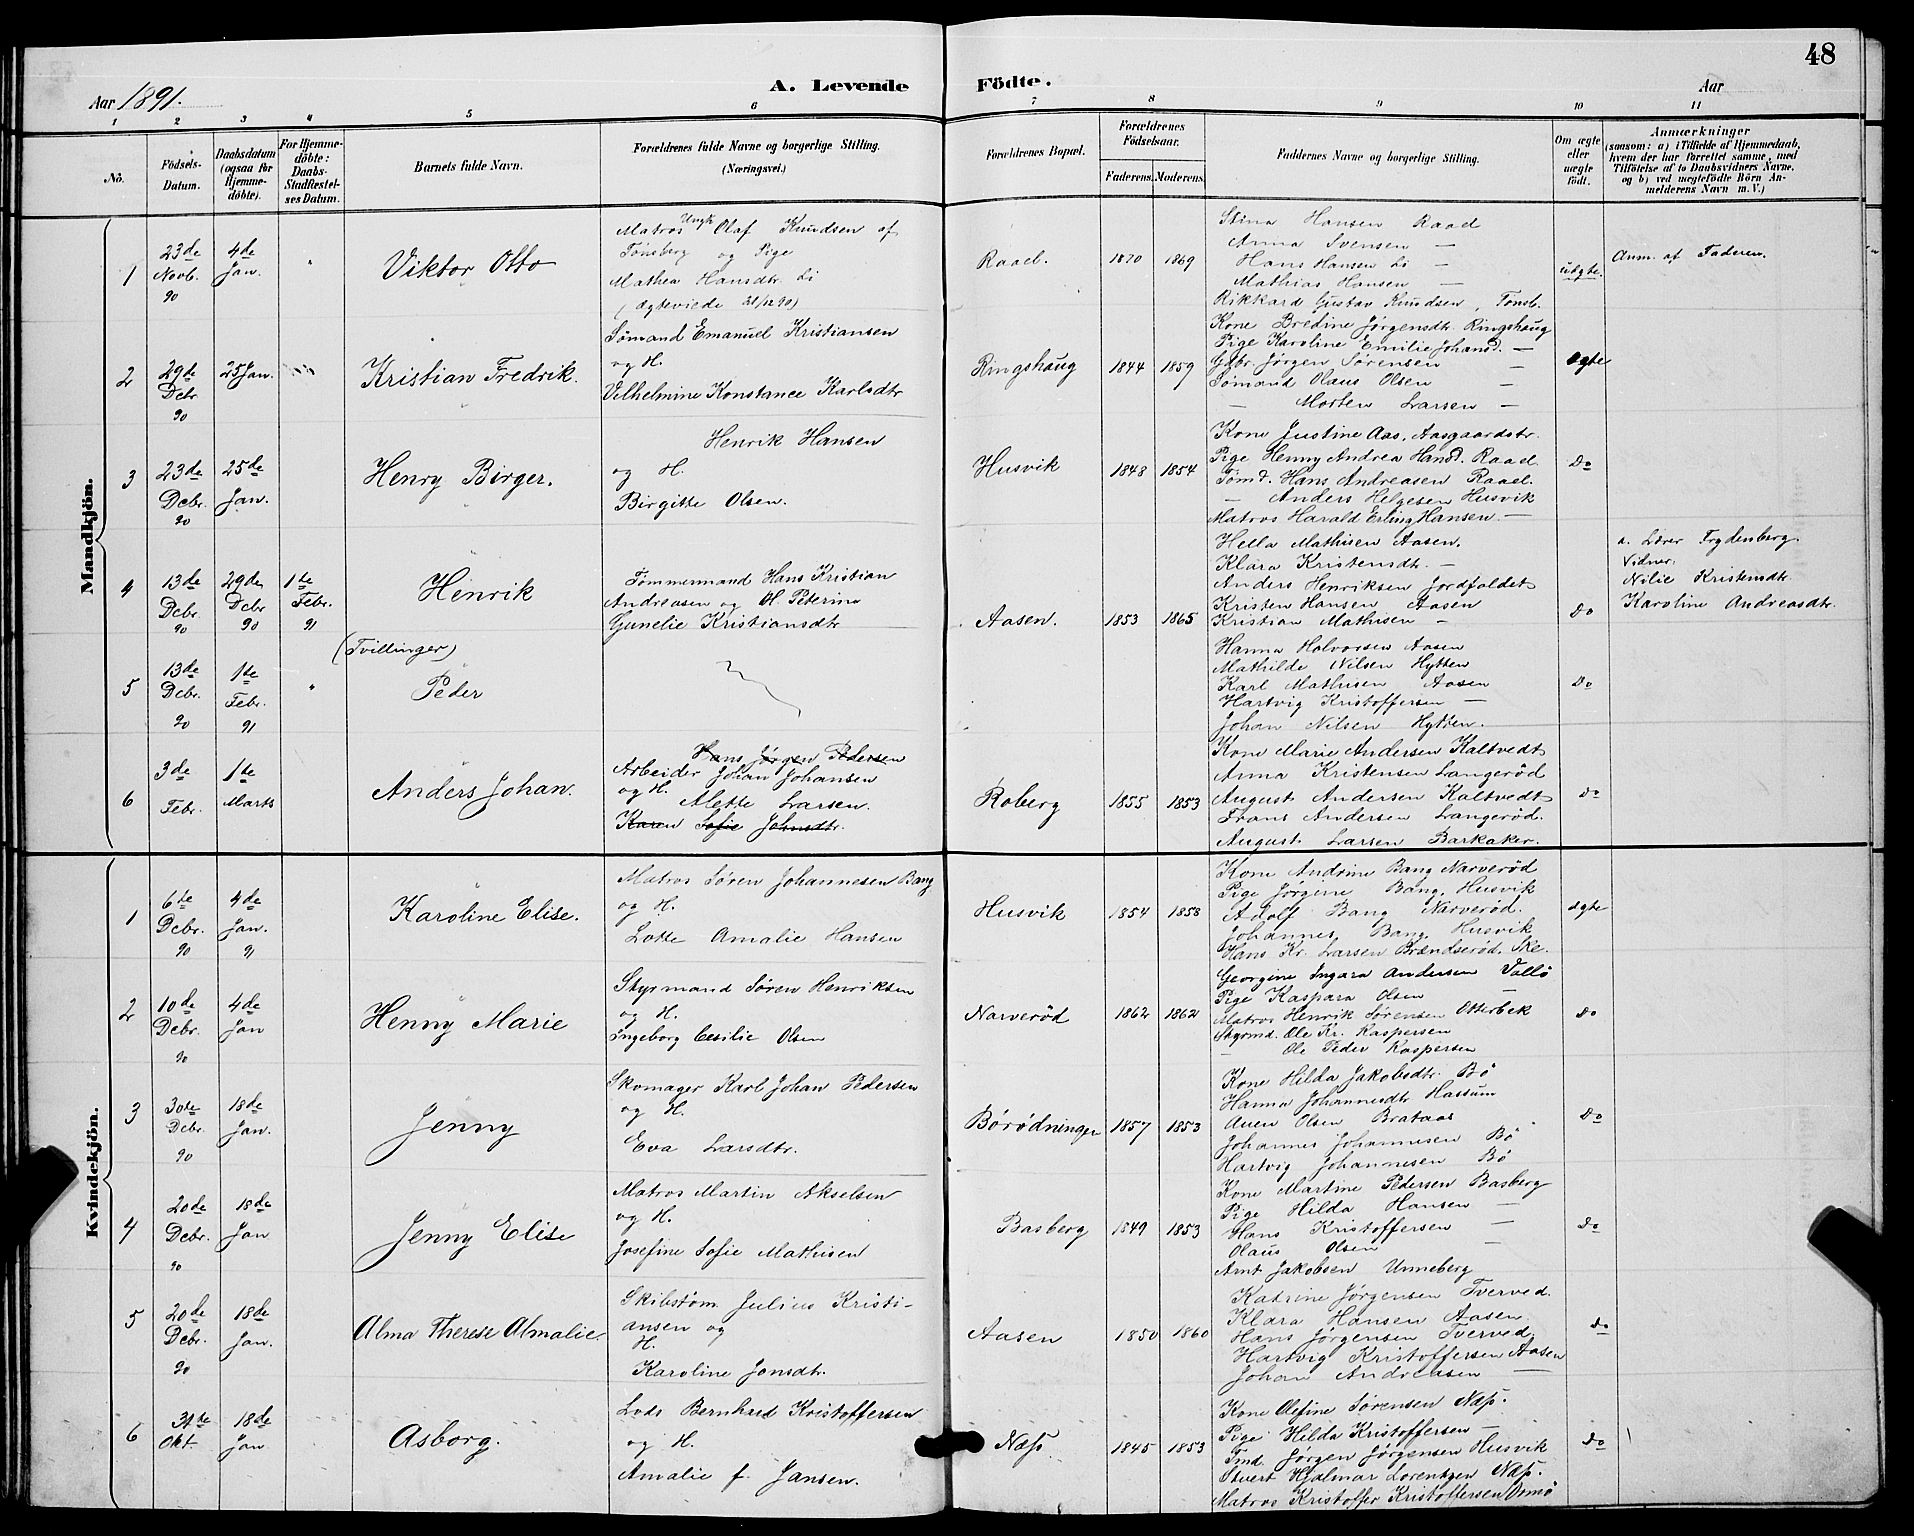 48
Aar 1891.
A. Levende
Födte.
Aar
1 2 3 4 5 6 7 8 9 10 11
No.
Födsels-Datum.
Daabsdatum (ogsaa for Hjemme-döbte).
For Hjemme-döbte: Daabs-Stadfæstel-ses Datum.
Barnets fulde Navn.
Forældrenes fulde Navne og borgerlige Stilling.
(Næringsvei.)
Forældrenes Bopæl.
Forældrenes Födselsaar.
Faderens. Moderens.
Faddernes Navne og borgerlige Stilling.
Om ægte eller uægte födt.
Anmærkninger
(saasom: a) i Tilfælde af Hjemmedaab, hvem der har forrettet samme, med Tilföielse af to Daabsvidners Navne, og b) ved uægtefödte Börn An-melderens Navn m. V.)
Mandkjön.
1
23de Novb. 90
4de Jan.
"
Viktor Otto
Matros Ungk Olaf Knudsen af
Tönsberg og Pige
Mathea Hansdtr. Li
(Ægteviede 28/12 90)
Raael.
1870 1869
Stina Hansen Raael
Anna Svensen —
Hans Hansen Li —
Mathias Hansen —
Rikkard Gustav Knudsen, Tönsb.
uægte.
Anm. af Faderen.
2
29de Debr. 90
25 Jan.
Kristian Fredrik.
Sömand Emanuel Kristiansen
og H.
Vilhelmine Konstance Karlsdtr
Ringshaug
1844 1859
Kone Bredine Jörgensdtr. Ringshaug
Pige Karoline Emilie Johansd. —
Gbr. Jörgen Sörensen —
Sömand Olaus Olsen —
— Morten Larsen —
Ægte
3
23de Debr. 90
25de Jan.
Henry Birger.
Henrik Hansen
og H.
Birgitte Olsen.
Husvik
1848 1854
Kone Justine Aas, Aasgaardstr.
Pige Henny Andrea Hansd. Raael.
Tömd. Hans Andreasen Raael.
— Anders Helgesen Husvik
Matros Harald Erling Hansen. —
Do
4
13de Debr. 90
29de Debr 90
1te Febr. 91
Henrik
Tömmermand Hans Kristian
Andreasen og H. Peterine
Gunelie Kristiansdtr
Aasen.
1853 1865
Hella Mathisen Aasen.
Klara Kristensdtr. —
Anders Henriksen Jordfaldet
Kristen Hansen Aasen
Kristian Mathisen —
Do
a. Lærer Frydenberg.
Vidner.
Nilie Kristensdtr.
Karoline Andreasdtr.
(Tvillinger)
5
13de Debr. 90
1te Febr. 91
"
Peder
Hanna Halvorsen Aasen
Mathilde Nilsen Hytten
Karl Mathisen Aasen
Hartvig Kristoffersen —
Johan Nilsen Hytten.
Do
6
3de Febr.
1te Marts
Anders Johan.
Hans Jörgen Pedersen
Arbeider Johan Johansen
og H.
Alette Larsen.
Karen Sofie Johnsdtr.
Roberg
1855 1853
Kone Marie Andersen Kaltvedt
Anna Kristensen Langeröd
August Andersen Kaltvedt
Frans Andersen Langeröd.
August Larsen Barkaker.
do
Kvindekjön.
1
6te Debr. 90
4de Jan. 91
Karoline Elise.
Matros Sören Johannesen Bang
og H.
Lotte Amalie Hansen
Husvik
1854 1858
Kone Andrine Bang Narveröd
Pige Jörgine Bang, Husvik
Adolf Bang Narveröd.
Johannes Bang, Husvik
Hans Kr. Larsen Brændseröd, Ske.
Ægte
2
10de Debr. 90
4de Jan
Henny Marie
Styrmand Sören Henriksen
og H.
Ingeborg Cesilie Olsen
Narveröd
1862 1862
Georgine Ingara Andersen Vallö
Pige Kaspara Olsen —
Matros Henrik Sörensen Otterbek
Styrmd. Ole Kr. Kaspersen
— Ole Peder Kaspersen
do
3
30te Debr. 90
18de Jan.
Jenny
Skomager Karl Johan Pedersen
og H.
Eva Larsdtr.
Börödninger
1857 1853
Kone Hilda Jakobsdtr. Bö
Hanna Johannesdtr Hassum
Aven Olsen Brataas
Johannes Johannesen Bö
Hartvig Johannesen Bö
Do
4
20de Debr. 90
18de Jan
Jenny Elise
Matros Martin Akselsen
og H.
Josefine Sofie Mathisen
Basberg
1849 1853
Kone Martine Pedersen Basberg
Pige Hilda Hansen —
Hans Kristoffersen —
Olaus Olsen —
Arnt Jakobsen Unneberg
do
5
20de Debr. 90
18de Jan.
Alma Therese Almalie.
Skibstöm. Julius Kristi-
ansen og
H.
Karoline Jonsdtr.
Aasen
1850 1860
Katrine Jörgensen Tverved.
Klara Hansen Aasen
Hans Jörgensen Tverved.
Hartvig Kristoffersen Aasen
Johan Andreasen
do
6
31te Okt.
18de Jan
Asborg.
Lods Bernhard Kristoffersen
og H.
Amalie f. Jansen.
Næs.
1845 1853
Kone Olefine Sörensen Næs.
Pige Hilda Kristoffersen —
Tmd. Jörgen Jörgensen Husvik
Stuert Hjalmar Lorentzen Næs.
Matros Kristoffer Kristoffersen Ormö
do